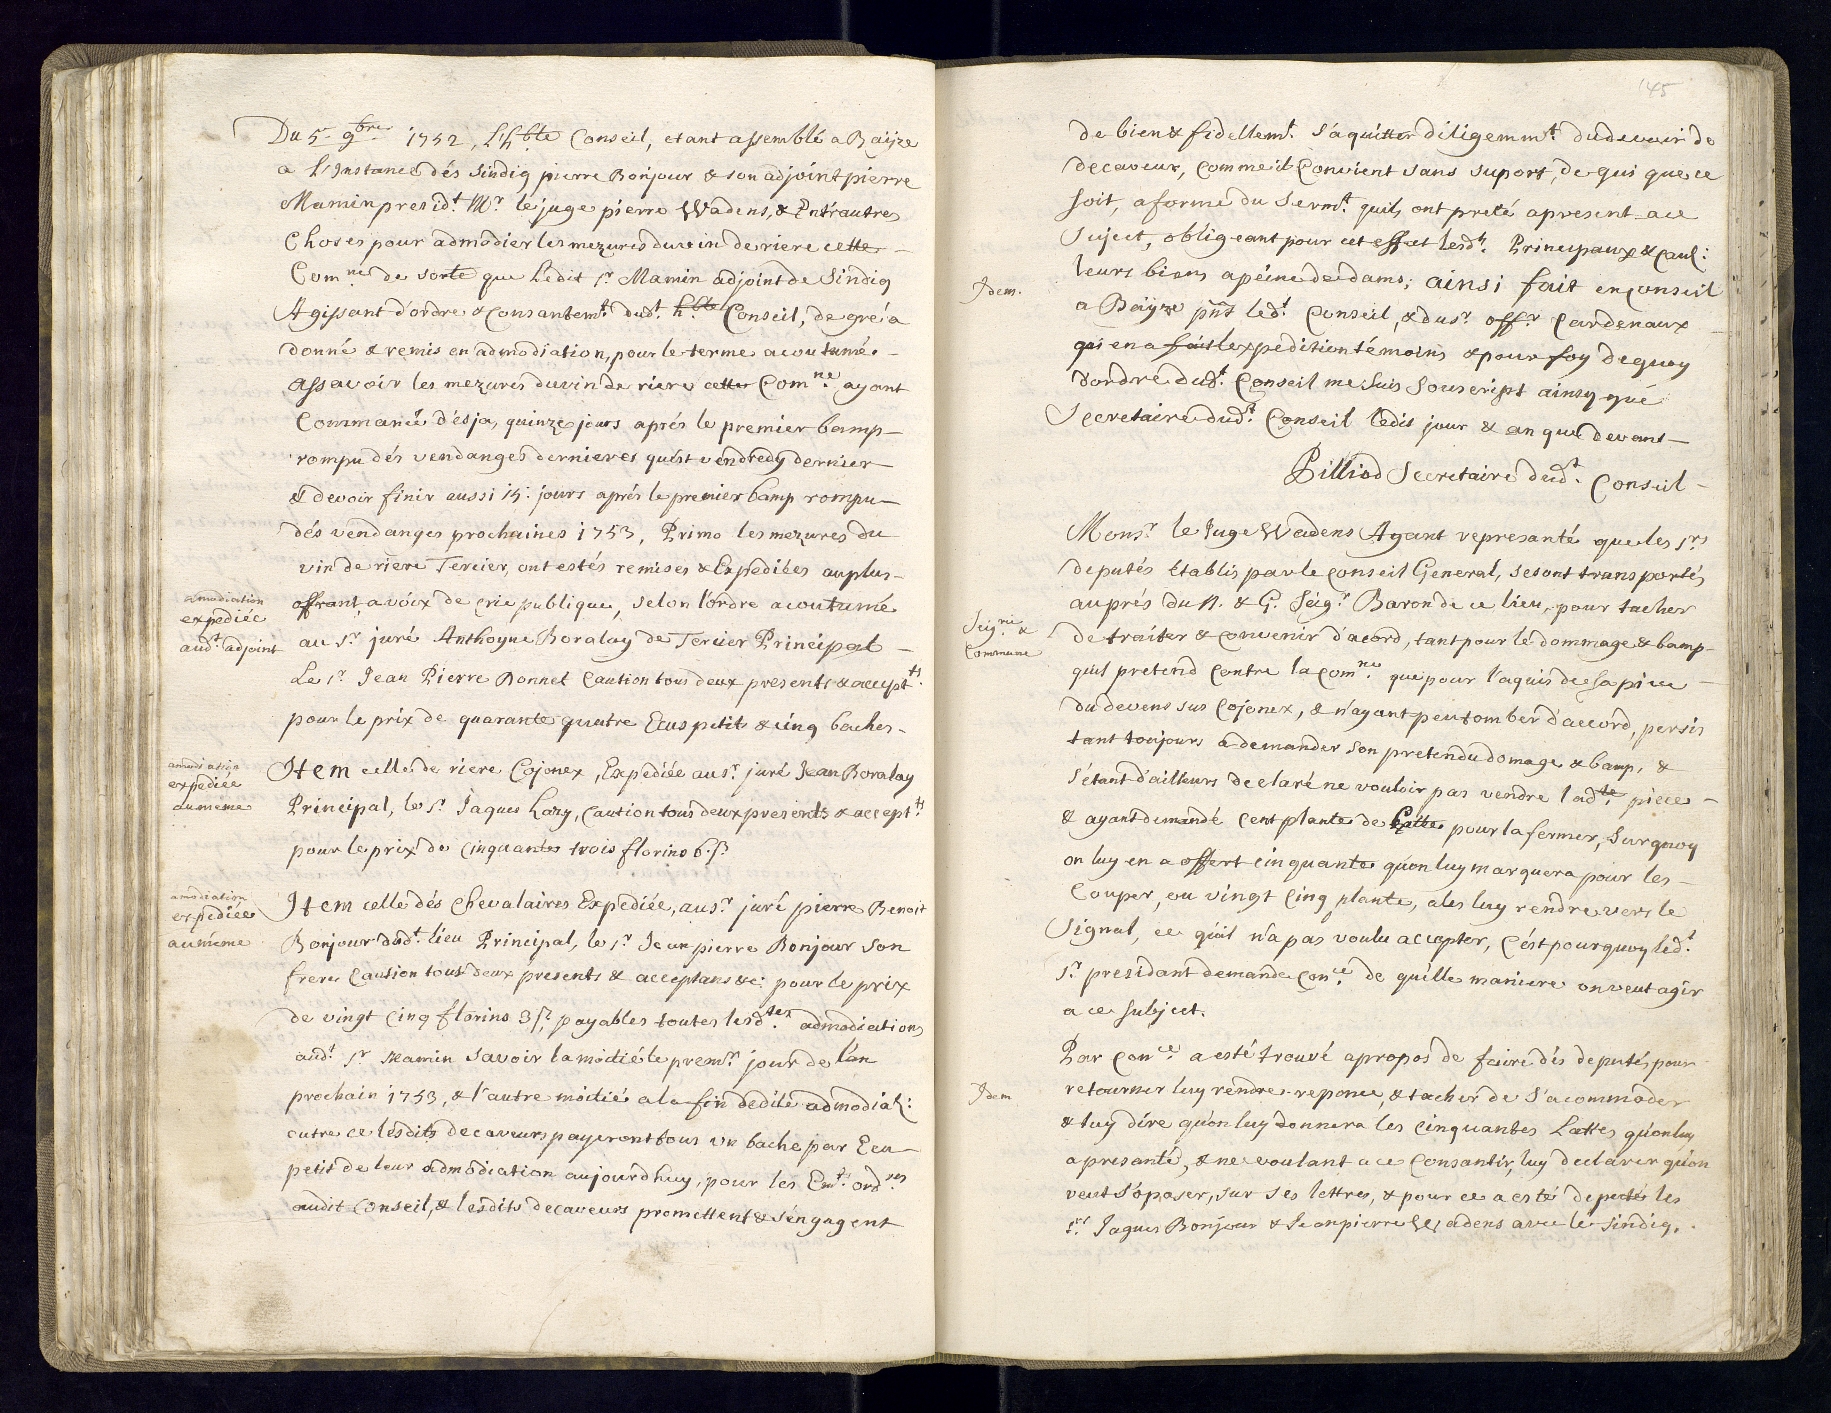 Du 5e 9bre 1752, L'hble Conseil, etant assemblé a Baÿze
a L'Instance dés Sindiq pierre Bonjour & son adjoint pierre
Mamin presidt Mr le juge pierre Wadens, & Entr'autres
Choses pour admodier les mezures du vin de riere cette
Comne de sorte que Ledit Sr Mamin adjoint de Sindiq
Agissant d'ordre & Consantemt dudt hble Conseil, de gré a
donné & remis en admodiation, pour le terme acoutumé.
assavoir les mezures du vin de riere cette Comne ayant
Commancé désja, quinze jours aprés le premier bamp
rompu dés vendanges dernieres qu'est vendredy dernier
& devoir finir aussi 15: jours aprés le premier bamp rompu
dés vendanges prochaines 1753, Primo les mezures du
vin de riere Tercier, ont estés remises & Expediées au plus
amodiation
expediée
audt adjoint
offrant a voix de crie publique, selon l'ordre acoutumé
au Sr juré Anthoyne Boralay de Tercier Principal
Le Sr Jean Pierre Bonnet Caution tous deux presents & acceptts
pour le prix de quarante quatre Ecus petits & cinq baches.
amodiation
expediée
au meme
Item celle de riere Cojonex, Expediée au Sr juré Jean Boralay
Principal, le Sr Jaques Lozy, Caution tous deux presents & acceptts
pour le prix de cinquantes trois florins 6. s.
amodiation
expediée
au meme
Item celle dés Chevalaires Expediée, au Sr juré pierre Benoit
Bonjour dudt lieu Principal, le Sr Jean pierre Bonjour son
frere Caution tous deux presents & acceptans &c: pour le prix
de vingt cinq florins 3 s. payables toutes lesdtes admodiations
audt Sr Mamin savoir la moitié le premr jour de l'an
prochain 1753, & l'autre moitié a la fin dedite admodiat:
outre ce lesdits decaveurs payeront tous un bache par Ecu
petit de leur admodiation aujourdhuy, pour les Emt ordres
audit Conseil, & lesdits decaveurs promettent & s'engagent
145
de bien & fidellemt s'aquitter diligemmt du devoir de
decaveur, comme il Convient sans suport, de qui que ce
soit, a forme du Sermt quils ont preté a present a ce
Suject, obligeant pour cet effect lesdts Principaux & Caul:
Idem.
leurs biens a peine de dams; ainsi fait en conseil
a Baÿze pnt ledt Conseil, & du Sr offr Cardenaux
qui en a fait l'expedition témoins & pour foy de quoy
d'ordre dudt Conseil me suis Souscript ainsy qué
Secretaire dudt Conseil ledis jour & an que devant
Pilliod Secretaire dudt Conseil
Monsr le Juge Wadens Ayant represanté que les Srs
deputés Etablis par le Conseil General, se sont transportés
auprés du N. & G. Seigr Baron de ce lieu, pour tacher
Seigrie &
Commune
de traiter & convenir d'acord, tant pour le dommage & bamp
quil pretend contre la Comne que pour l'aquis de sa piece
du devens sus Cojonex, & n'ayant peu tomber d'accord, persis
tant toujours a demander son pretendu domage & bamp, &
s'étant d'ailleurs declaré ne vouloir pas vendre ladte piece
& ayant demandé cent plante de Latte pour la fermer, Sur quoy
on luy en a offert cinquante qu'on luy marquera pour les
Couper, ou vingt cinq plante, a les luy rendre vers le
Signal, ce qu'il n'a pas voulu accepter, C'ést pourquoy ledt
Sr presidant demande conce de quélle maniere on veut agir
a ce subject.
Par conce a esté trouvé apropos de faire dés deputés pour
Idem
retourner luy rendre reponce, & tacher de s'acommoder
& luy dire qu'on luy donnera les cinquantes Lattes qu'on luy
a presanté, & ne voulant a ce Consantir, luy declarer qu'on
veut s'oposer, sur ses lettres, & pour ce a esté deputés les
Srs Jaques Bonjour & Jean pierre Wadens avec le Sindiq.